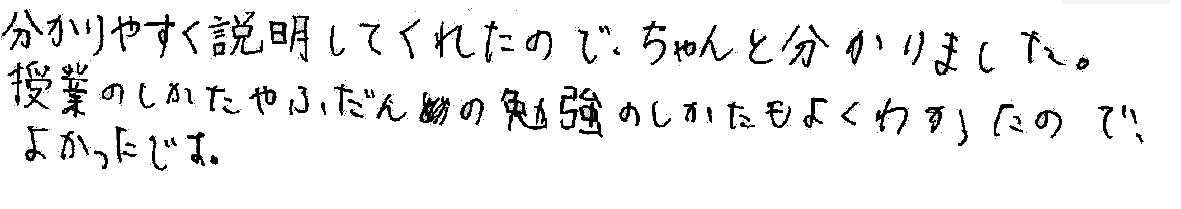 分かりやすく説明してくれたので、ちゃんと分かりました。
授業のしかたやふだんの勉強のしかたもよくわかったので、
よかったです。